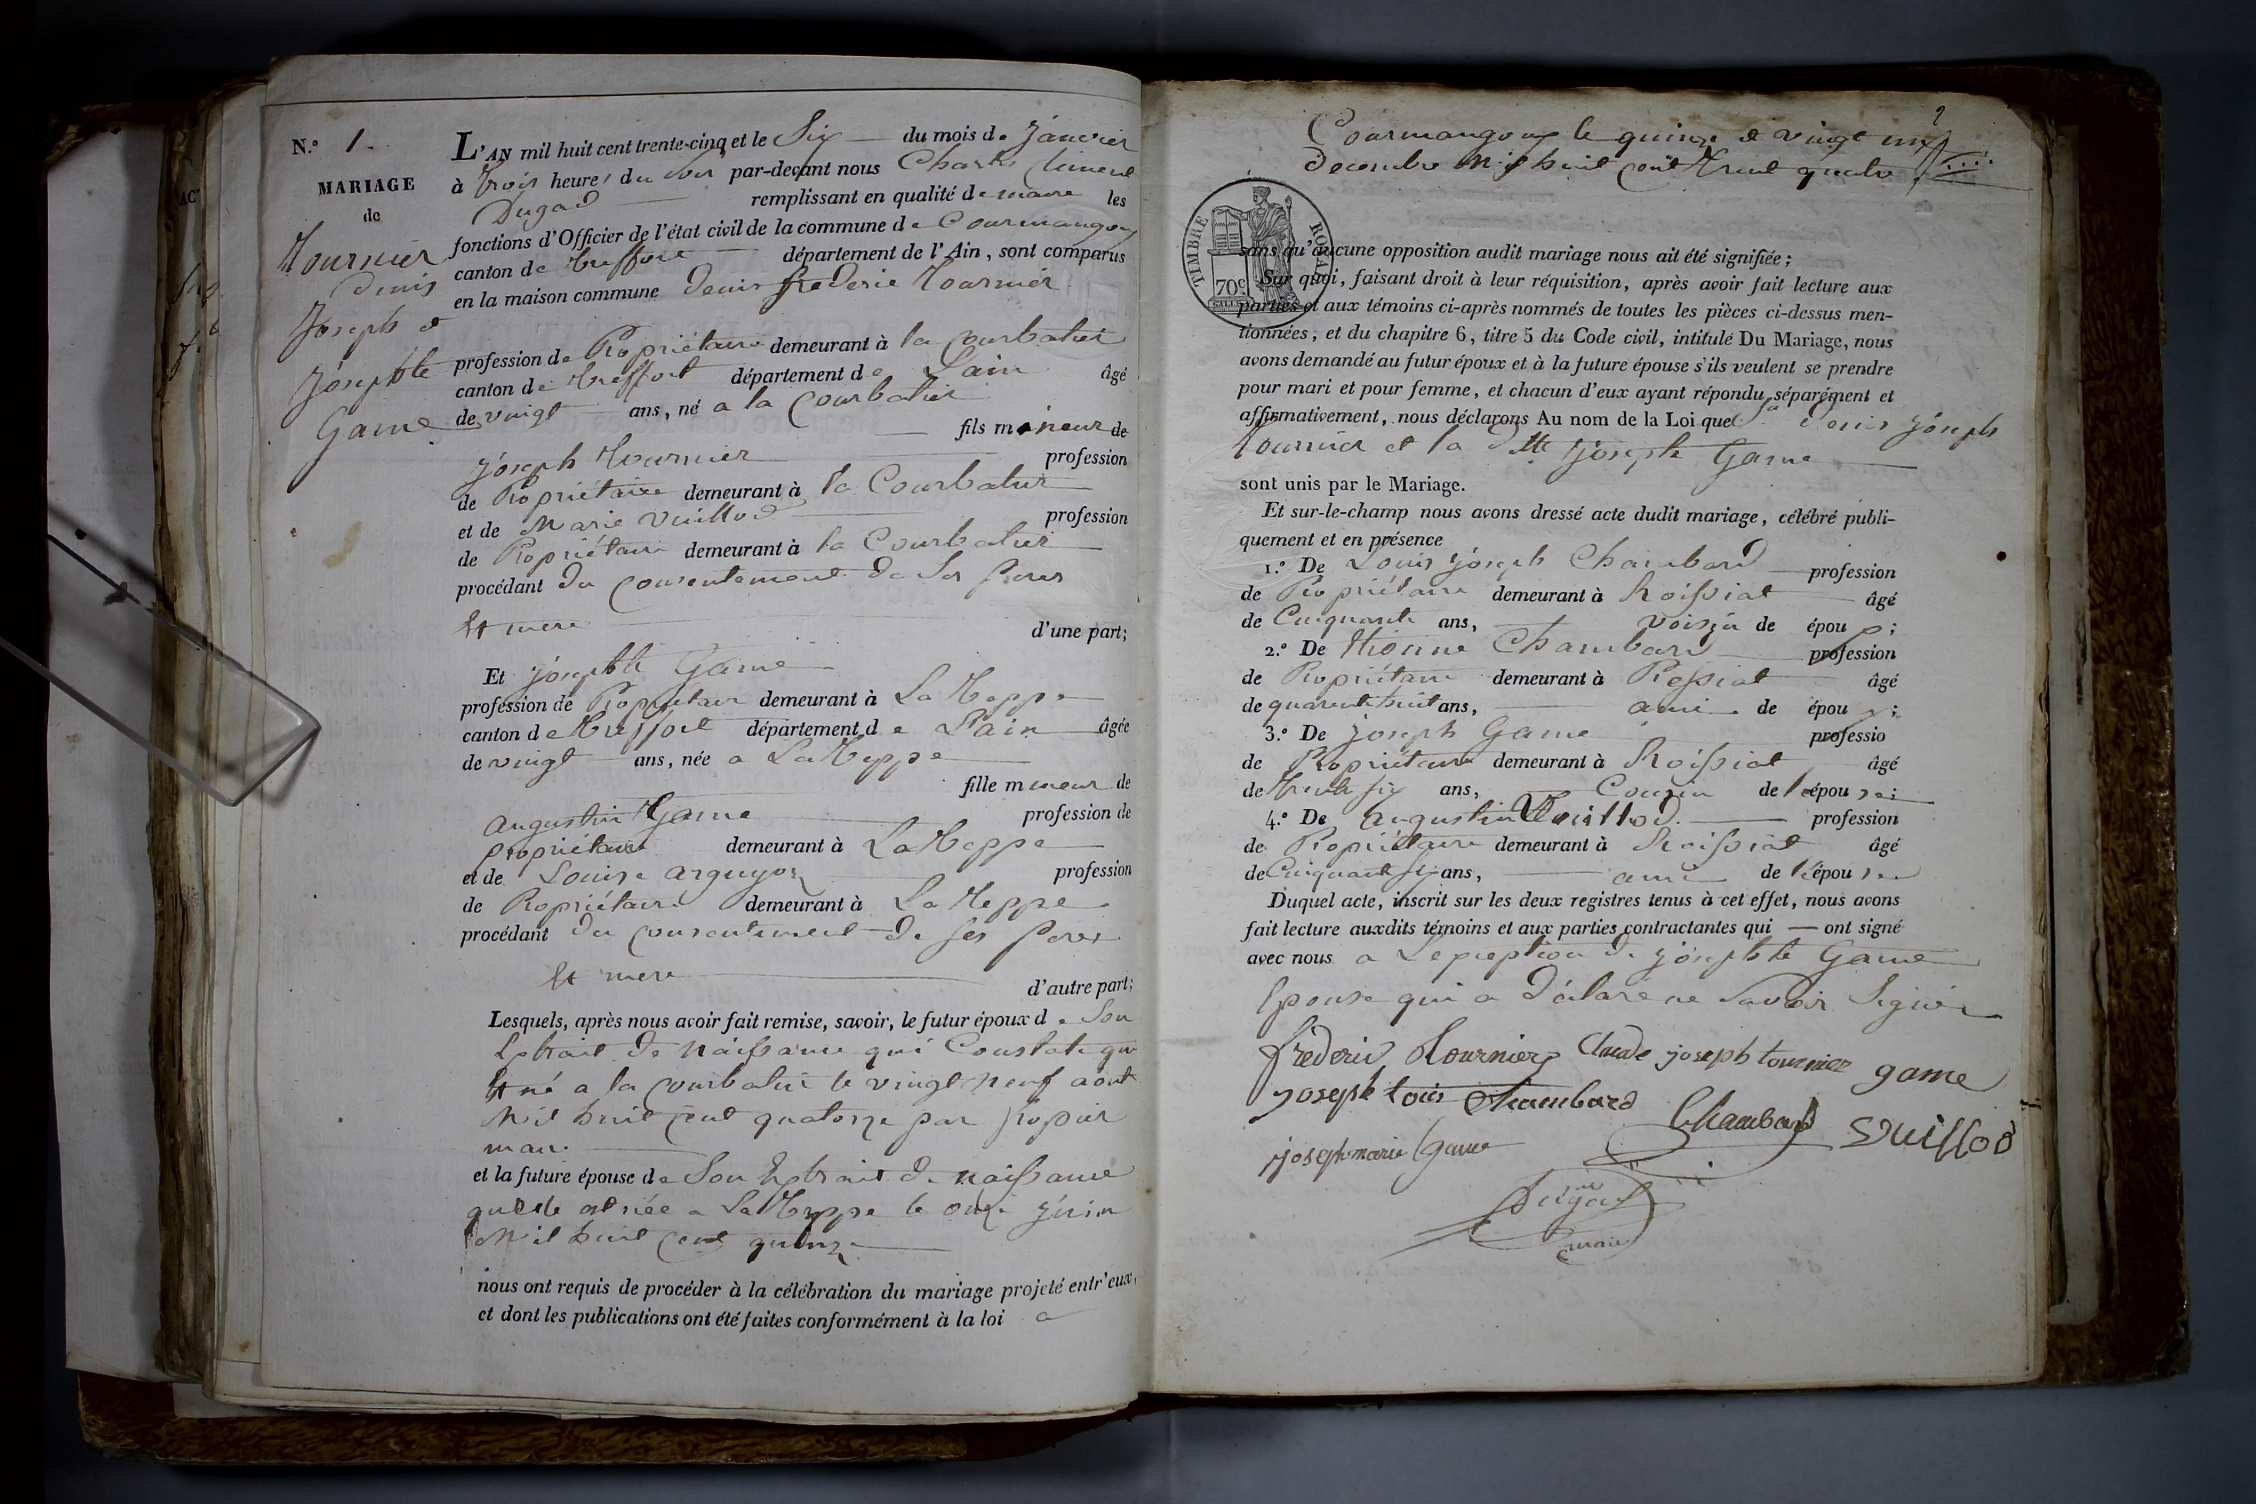 N.° 1.
MARIAGE
de
Tournier
Denis
Joseph &
Josephte
Game
L'AN mil huit cent trente-cinq et le Six du mois de Janvier
à Trois heures du soir par-devant nous Charles Clement
Dugad remplissant en qualité de maire les
fonctions d'Officier de l'état civil de la commune de Courmangoux
canton de treffort département de l'Ain, sont comparus
en la maison commune Denis frederic Tournier
profession de Propriétaire demeurant à la Courbatier
canton de treffort département de Lain âgé
de vingt ans, né a la Courbatier
fils mineur de
Joseph Tournier profession
de Propriétaire demeurant à la Courbatier
et de Marie Vuillod profession
de Propriétaire demeurant à la Courbatier
procédant du consentement de ses peres
Et mere d'une part;
Et Josephte Game
profession de Propriétaire demeurant à La Teppe
canton de Treffort département de Lain âgée
de vingt ans, née a La Teppe
fille mineur de
augustin Game profession de
propriétaire demeurant à La Teppe
et de Louise arguyon profession
de Propriétaire demeurant à La Teppe
procédant du consentement de ses peres
Et mere d'autre part;
Lesquels, après nous avoir fait remise, savoir, le futur époux de Son
Extrait de naissance qui Constate que
Est né a la Courbatier le vingt neuf aout
Mil huit cent quatorze par
maire
et la future épouse de Son Extrait de naissance
quelle est née a La Teppe le onze Juin
Mil huit cent quinze
nous ont requis de procéder à la célébration du mariage projeté entr'eux,
et dont les publications ont été faites conformément à la loi a
2
Courmangoux le quinze & vingt un
Decembre Mil huit cent Trente quatre
TIMBRE ROYAL
70c
sans qu'aucune opposition audit mariage nous ait été signifiée;
Sur quoi, faisant droit à leur réquisition, après avoir fait lecture aux
parties et aux témoins ci-après nommés de toutes les pièces ci-dessus men-
tionnées, et du chapitre 6, titre 5 du Code civil, intitulé Du Mariage, nous
avons demandé au futur époux et à la future épouse s'ils veulent se prendre
pour mari et pour femme, et chacun d'eux ayant répondu séparément et
affirmativement, nous déclarons Au nom de la Loi que Denis Joseph
Tournier et la Dlle Josephte Game
sont unis par le Mariage.
Et sur-le-champ nous avons dressé acte dudit mariage, célébré publi-
quement et en présence
1.° De Louis Joseph Chambard profession
de Propriétaire demeurant à Roissiat âgé
de Cinquante ans, voisin de épou x;
2.° De Etienne Chambard profession
de Propriétaire demeurant à Rossiat âgé
de quarente huit ans, ami de épou x;
3.° De Joseph Game professio
de Propriétaire demeurant à Roissiat âgé
de Trente six ans, Cousin de l'épou se;
4.° De augustin Vuillod profession
de Propriétaire demeurant à Roissiat âgé
de Cinquante six ans, ami de l'épou se
Duquel acte, inscrit sur les deux registres tenus à cet effet, nous avons
fait lecture auxdits témoins et aux parties contractantes qui — ont signé
avec nous a Lexception de Josephte Game
Epouse qui a déclaré ne Savoir Signer
frederic Tournier Claude joseph tournier game
joseph louis Chambard Chambard Vuillod
joseph marie Game
Dugad
maire